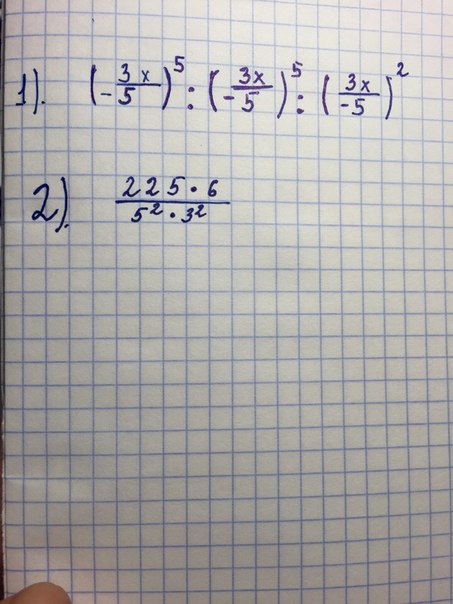 1). (3x/-5)^5 : (3x/-5)^5 : (3x/-5)^2
2). 225·6/5²·3²